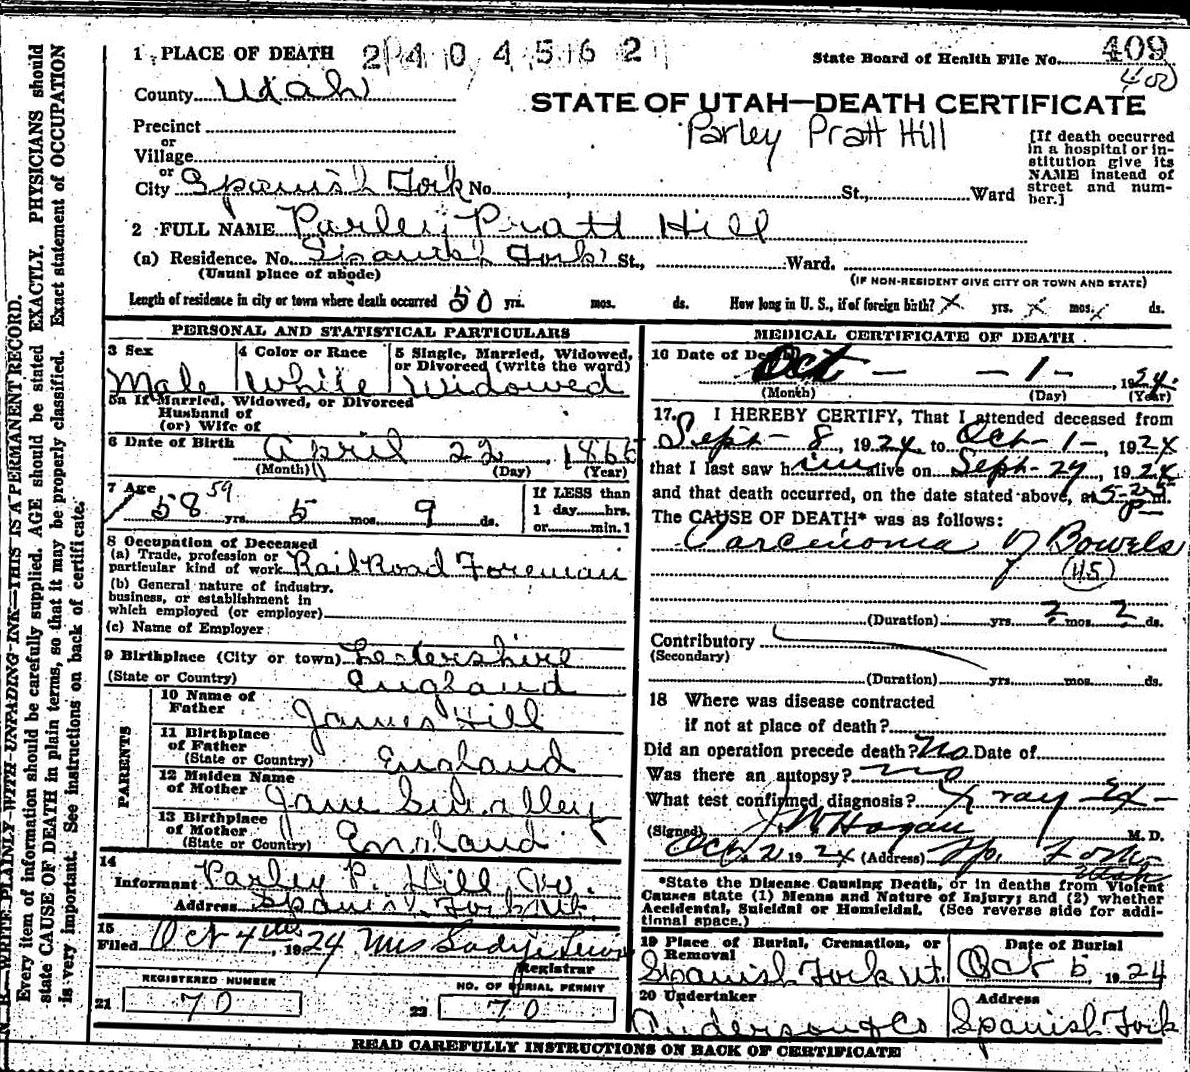 1 PLACE OF DEATH 2404562
State Board of Health File No. 409
400
County Utah
STATE OF UTAH—DEATH CERTIFICATE
Parley Pratt Hill
Precinct
or
Village
or
City Spanish Fork No. St., Ward
[If death occurred in a hospital or in-
stitution give its
NAME instead of
street and num-
ber.]
2 FULL NAME Parley Pratt Hill
(a) Residence. No. Spanish Fork St., Ward.
(Usual place of abode)
(IF NON-RESIDENT GIVE CITY OR TOWN AND STATE)
Length of residence in city or town where death occurred 50 yrs. mos. ds. How long in U. S., if of foreign birth? x yrs. x mos. x ds.
PERSONAL AND STATISTICAL PARTICULARS
3 Sex
Male
4 Color or Race
White
5 Single, Married, Widowed,
or Divorced (write the word)
Widowed
5a If Married, Widowed, or Divorced
Husband of
(or) Wife of
6 Date of Birth April 22, 1866
(Month) (Day) (Year)
7 Age
58 59 yrs. 5 mos. 9 ds.
If LESS than
1 day hrs.
or min.
8 Occupation of Deceased
(a) Trade, profession or
particular kind of work Rail Road Foreman
(b) General nature of industry,
business, or establishment in
which employed (or employer)
(c) Name of Employer
9 Birthplace (City or town) Lestershire
(State or Country) England
PARENTS
10 Name of
Father James Hill
11 Birthplace
of Father
(State or Country) England
12 Maiden Name
of Mother Jane
13 Birthplace
of Mother
(State or Country) England
14
Informant Parley P. Hill
Address Spanish Fork Ut.
15
Filed Oct 4, 1924 Mrs
Registrar
REGISTERED NUMBER
21 70
NO. OF BURIAL PERMIT
22 70
MEDICAL CERTIFICATE OF DEATH
16 Date of Death
Oct — — 1 —, 1924
(Month) (Day) (Year)
17. I HEREBY CERTIFY, That I attended deceased from
Sept - 8, 1924 to Oct - 1 -, 1924
that I last saw him alive on Sept - 29, 1924
and that death occurred, on the date stated above, at 5-25 P m.
The CAUSE OF DEATH* was as follows:
Carcenoma of Bowels
45
(Duration) yrs. 2 mos. 2 ds.
Contributory
(Secondary)
(Duration) yrs. mos. ds.
18 Where was disease contracted
if not at place of death?
Did an operation precede death? No Date of
Was there an autopsy? no
What test confirmed diagnosis? X ray - Ex -
(Signed) J. W. Hagan M. D.
Oct 2 1924 (Address) Sp. Fork Utah
*State the Disease Causing Death, or in deaths from Violent
Causes state (1) Means and Nature of Injury; and (2) whether
Accidental, Suicidal or Homicidal. (See reverse side for addi-
tional space.)
19 Place of Burial, Cremation, or
Removal
Spanish Fork Ut.
Date of Burial
Oct 5, 1924
20 Undertaker
Anderson & Co
Address
Spanish Fork
READ CAREFULLY INSTRUCTIONS ON BACK OF CERTIFICATE
N. B.—WRITE PLAINLY WITH UNFADING INK—THIS IS A PERMANENT RECORD.
Every item of information should be carefully supplied. AGE should be stated EXACTLY. PHYSICIANS should
state CAUSE OF DEATH in plain terms, so that it may be properly classified. Exact statement of OCCUPATION
is very important. See instructions on back of certificate.